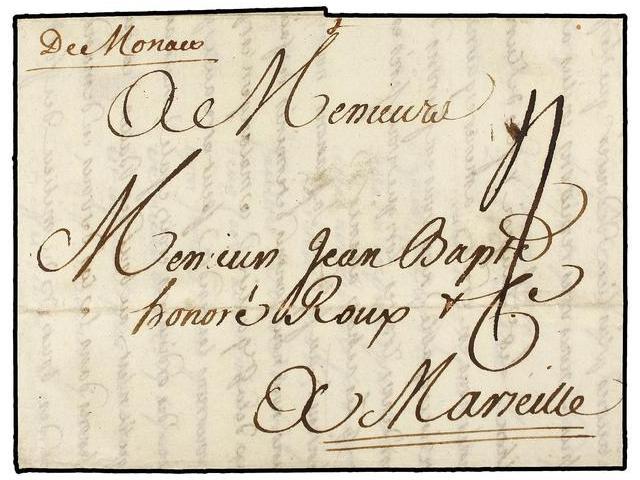 De Monaco
A Messieurs
Messieurs Jean Bapte
honoré Roux & Ce
A Marseille